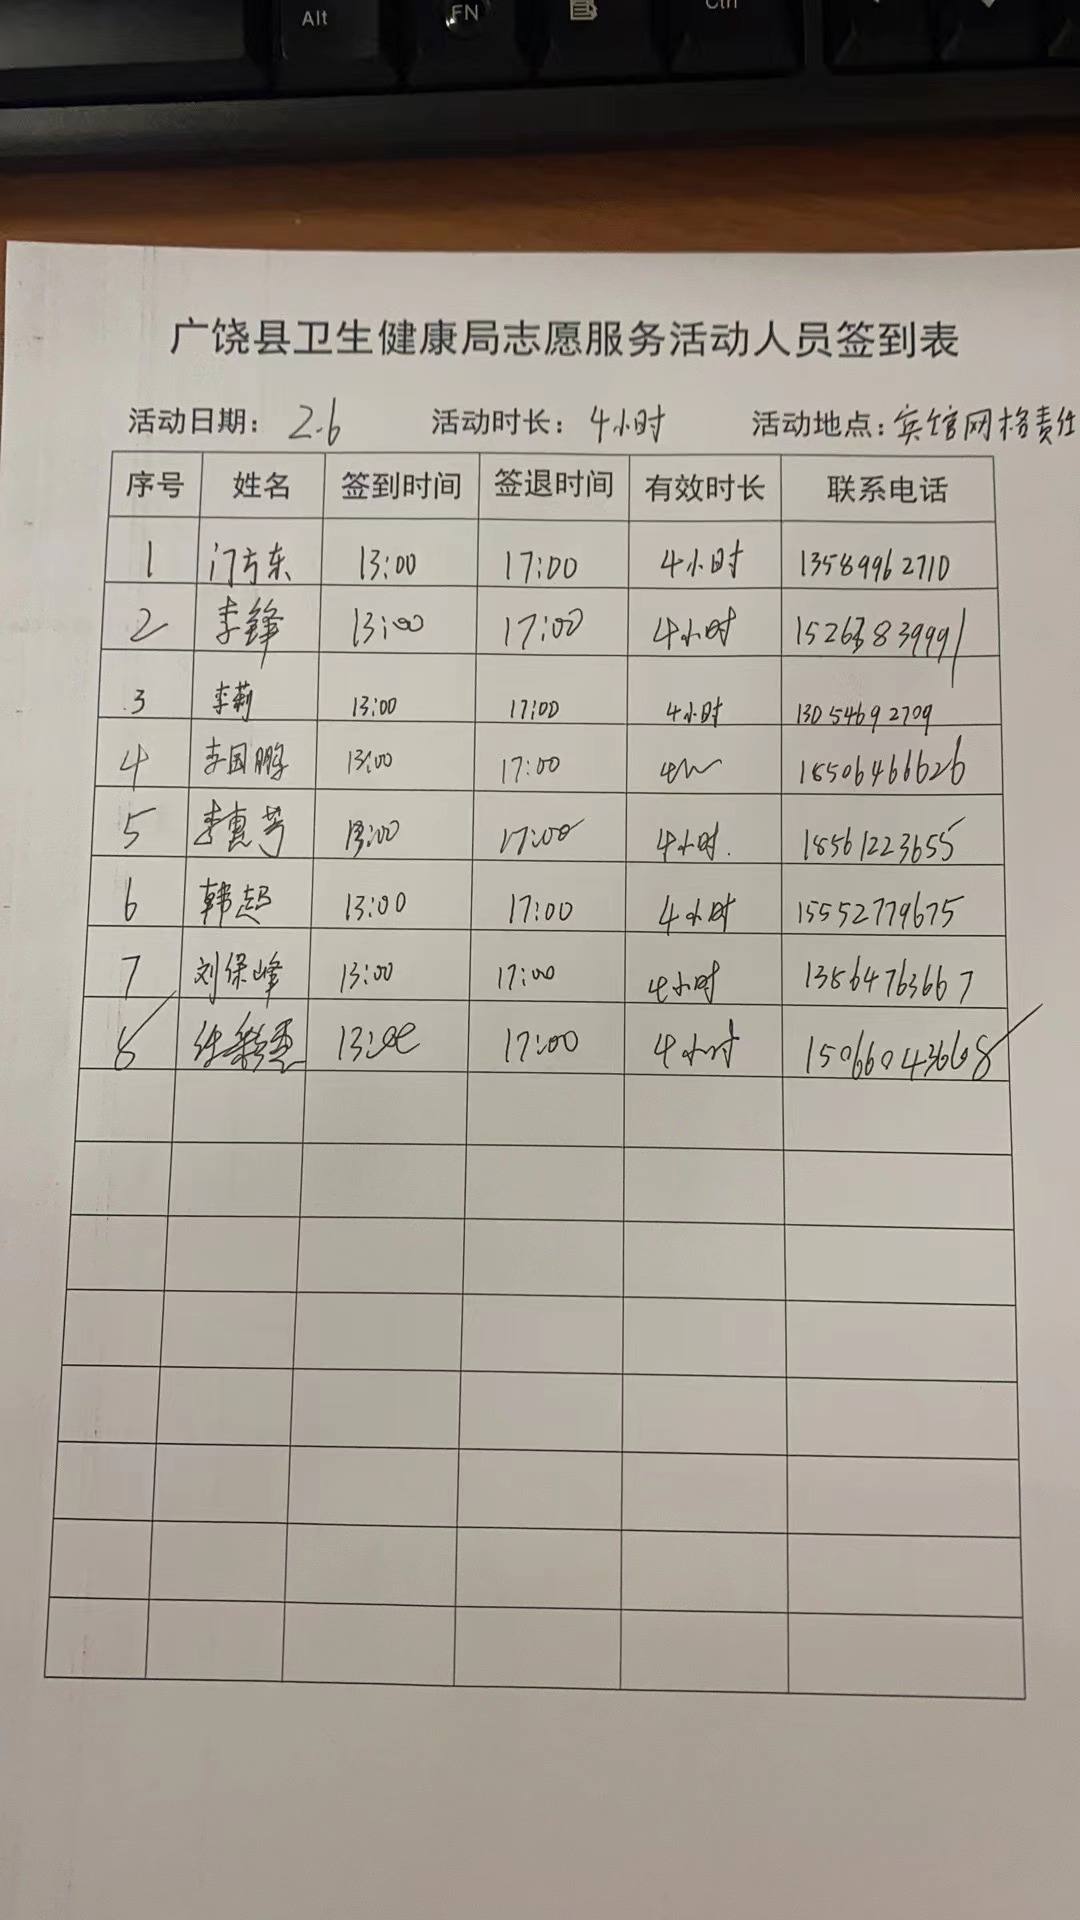 Alt
FN
Ctrl
广饶县卫生健康局志愿服务活动人员签到表
活动日期： 2.6 活动时长： 4小时 活动地点：宾馆网格责任
序号 姓名 签到时间 签退时间 有效时长 联系电话
1 门方东 13:00 17:00 4小时 13589962710
2 李锋 13:00 17:00 4小时
3 李莉 13:00 17:00 4小时 13054692709
4 李国鹏 13:00 17:00 18506466626
5 李惠芳 13:00 17:00 4小时. 18561223655
6 韩超 13:00 17:00 4小时 15552779675
7 刘保峰 13:00 17:00 4小时 13864763667
8 13:00 17:00 4小时 15066043668